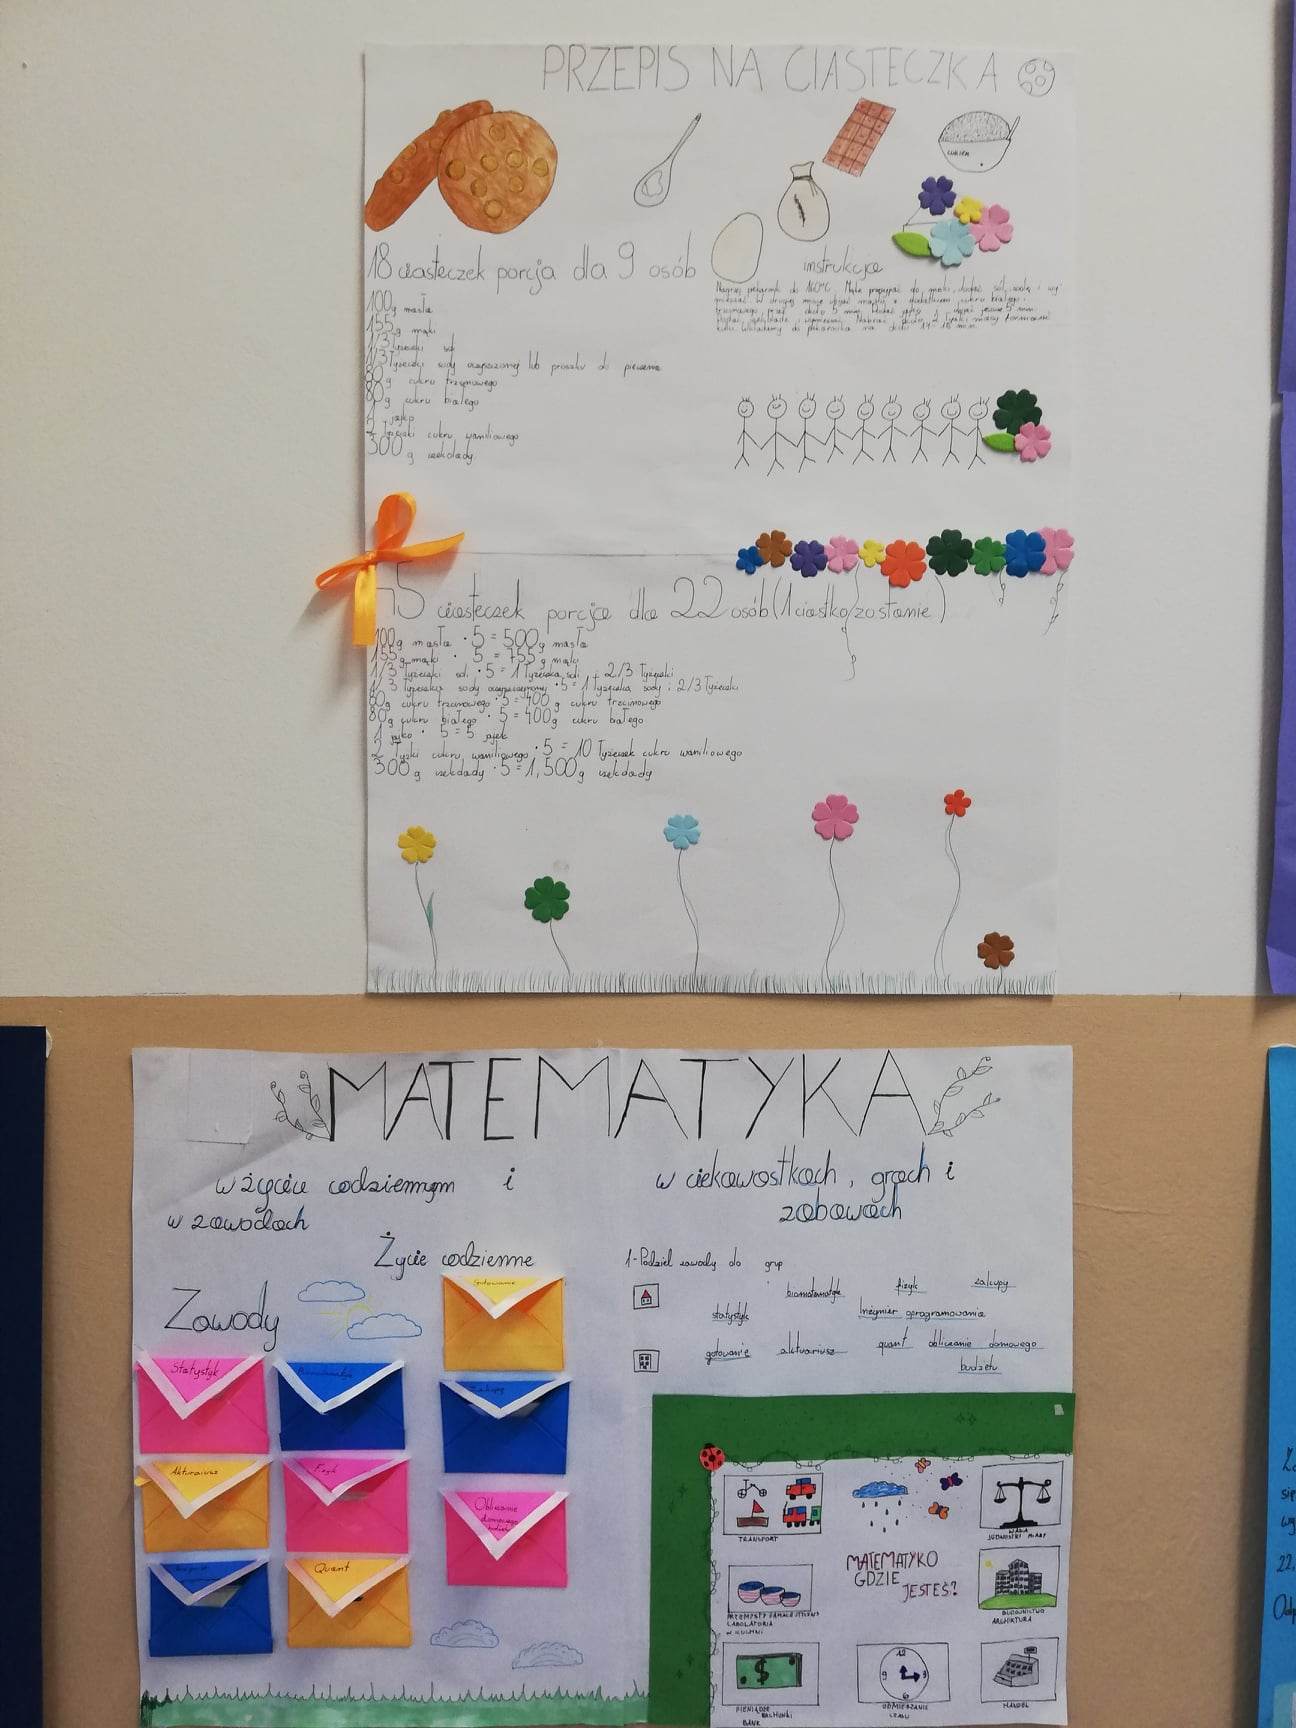 PRZEPIS NA CIASTECZKA
CUKIER
18 ciasteczek porcja dla 9 osób
100g masła
155g mąki
1/3 łyżeczki soli
1/3 łyżeczki sody oczyszczonej lub proszku do pieczenia
80g cukru trzcinowego
80g cukru białego
1 jajko
2 łyżeczki cukru waniliowego
300g czekolady
instrukcja
Nagrzej piekarnik do 160°C. Mąkę przesypać do miski, dodać sól, sodę i wy-
45 ciasteczek porcja dla 22 osób (1 ciastko zostanie)
100g masła · 5 = 500g masła
155g mąki · 5 = 755g mąki
1/3 łyżeczki soli · 5 = 1 łyżeczka soli i 2/3 łyżeczki
1/3 łyżeczka sody oczyszczonej · 5 = 1 łyżeczka sody i 2/3 łyżeczki
80g cukru trzcinowego · 5 = 400g cukru trzcinowego
80g cukru białego · 5 = 400g cukru białego
1 jajko · 5 = 5 jajek
2 łyżki cukru waniliowego · 5 = 10 łyżeczek cukru waniliowego
300g czekolady · 5 = 1,500g czekolady
MATEMATYKA
w życiu codziennym i
w zawodach
w ciekawostkach, grach i
zabawach
Życie codzienne
Zawody
Gotowanie
Statystyk
Zakupy
Akturaiusz
Fizyk
Obliczanie
domowego
budżetu
Quant
1-Podziel zawody do grup
biomatematyk fizyk zakupy
statystyk Inżynier oprogramowania
gotowanie aktuariusz quant obliczanie domowego
budżetu
TRANSPORT
WAGA
JEDNOSTKI MIARY
MATEMATYKO
GDZIE
JESTEŚ?
PRZEMYSŁ FARMACEUTYCZNY
LABOLATORIA
W KUCHNI
BUDOWNICTWO
ARCHIKTURA
$
PIENIĄDZE
RACHUNKI
BANK
12
9 3
6
ODMIERZANIE
CZASU
HANDEL
22.